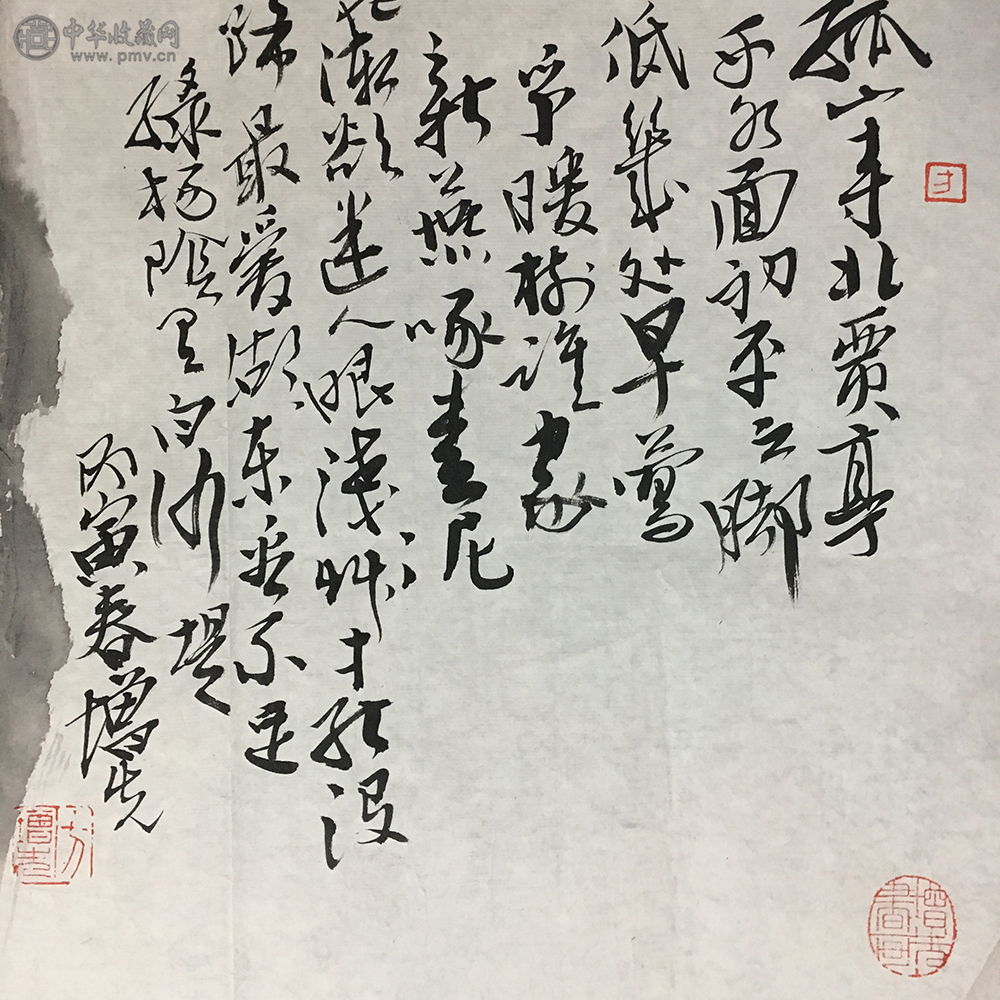 中华收藏网
www.pmv.cn
孤山寺北贾亭
西水面初平云脚
低幾处早莺
争暖树谁家
新燕啄春泥
花渐欲迷人眼浅草才能没
蹄最爱湖东行不足
绿杨阴里白沙堤
丙寅春增先
方
方增先